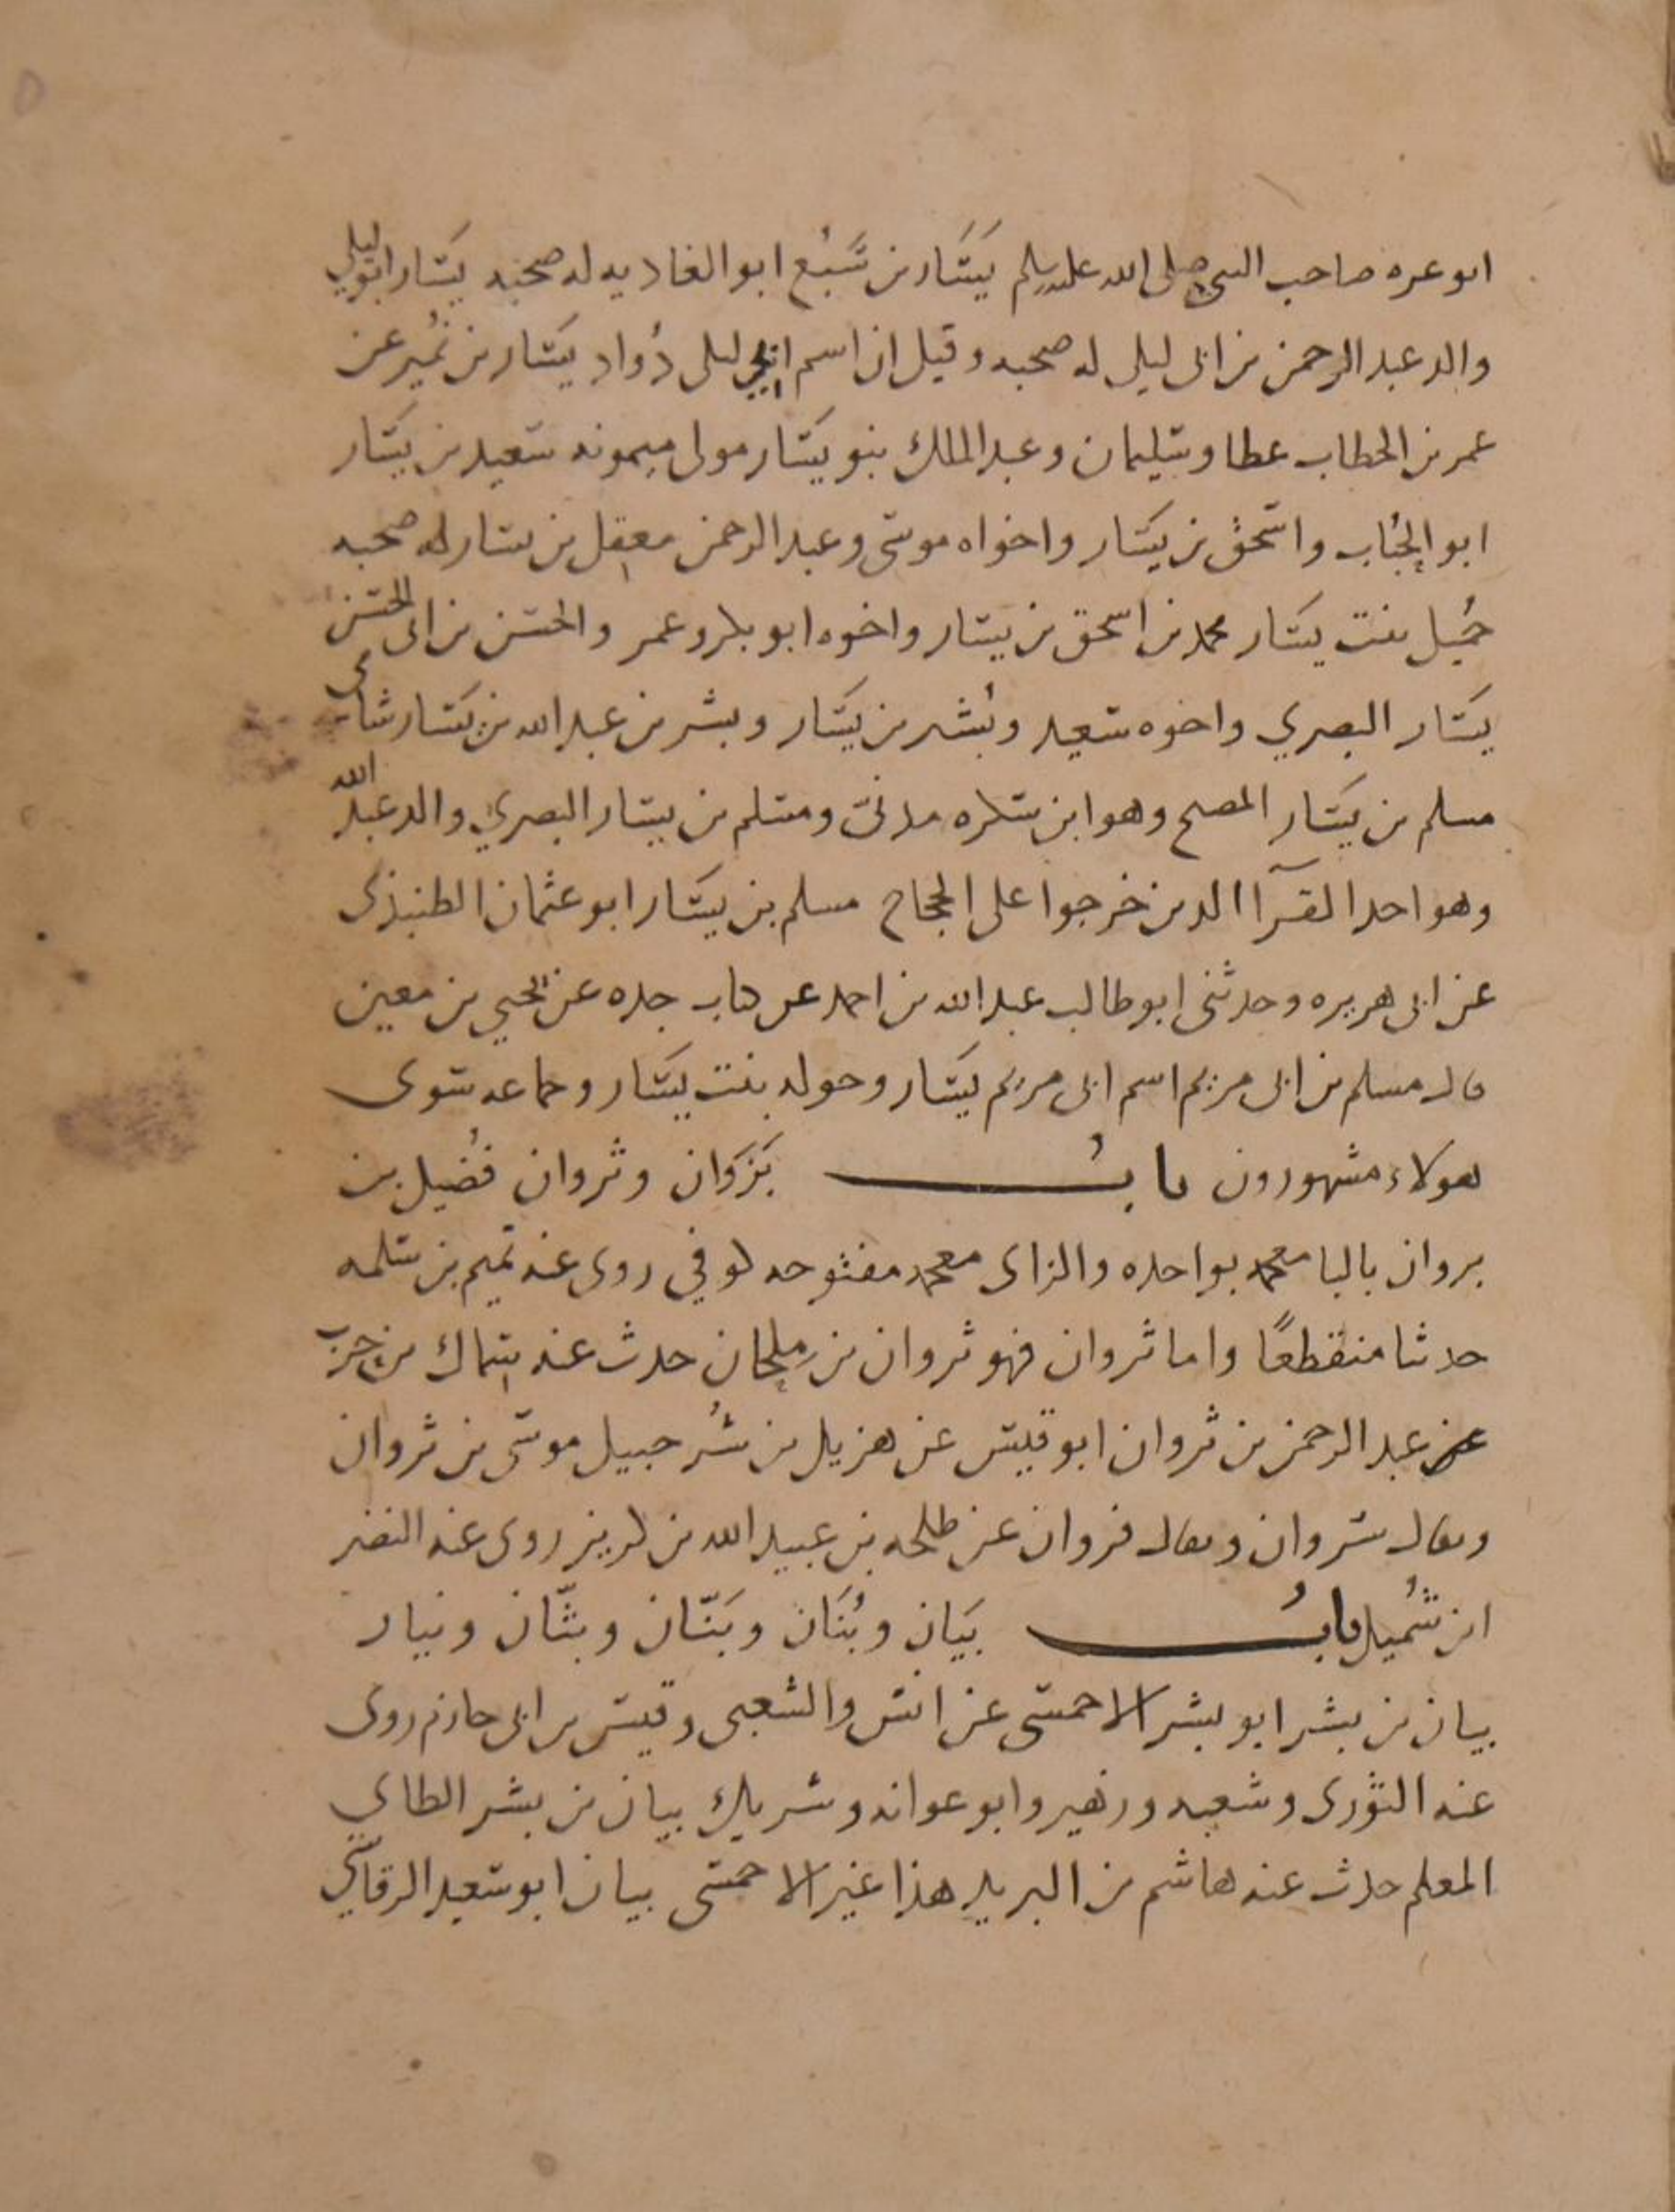 ابو عزه صاحب النبي صلى الله عليه وسلم يَسَار بن سَبُع ابو الغاديه له صحبه يَسَار ابو ليلى
والد عبد الرحمن بن ابى ليلى له صحبه وقيل ان اسم ابي ليلى دُواد يَسَار بن نُمير عن
عمر بن الخطاب عطا وسليمان وعبد الملك بنو يَسَار مولى ميمونه سعيد بن يَسَار
ابو الحُبَاب واسحق بن يَسَار واخواه موسى وعبد الرحمن معقل بن يسار له صحبه
جُميل بنت يَسَار محمد بن اسحق بن يسَار واخوه ابو بكر وعمر والحسن بن ابى الحسن
يَسَار البصري واخوه سعيد وبُشَير بن يَسَار وبشر بن عبد الله بن يَسَار شامى
مسلم بن يَسَار المصبح وهو ابن سكره مدنى ومسلم بن يسَار البصري والد عبد الله
وهو احد القرآا الذين خرجوا على الحجاج مسلم بن يسَار ابو عثمان الطنبذى
عن ابى هريره وحدثنى ابو طالب عبد الله بن احمد عن كتاب جده عن يحيي بن معين
قال مسلم بن ابى مريم اسم ابى مريم يَسَار وخوله بنت يَسَار وجماعه سوى
هولاء مشهورون بابُ بَزَوَان وثروان فُضيل بن
بزوان بالبا معجمه بواحده والزاى معجمه مفتوحه كوفي روى عنه تميم بن سلمه
حدثنا منقطعًا واما ثروان فهو ثروان بن ملحان حدث عنه سماك بن حرب
عن عبد الرحمن بن ثروان ابو قيس عن هزيل بن شُرحبيل موسى بن ثروان
ويقال سروان ويقال فروان عن طلحه بن عبيد الله بن كريز روى عنه النضر
ابن شُميل بابُ بَيَان وبُنَان وبَنّان وبثّان ونيار
بيان بن بشر ابو بشر الاحمسى عن انس والشعبى وقيس بن ابى حازم روى
عنه الثورى وشعبه وزهير وابو عوانه وشريك بيان بن بشر الطاي
المعلم حدث عنه هاشم بن البريد هذا غير الاحمسى بيان ابو سعيد الرقاشي